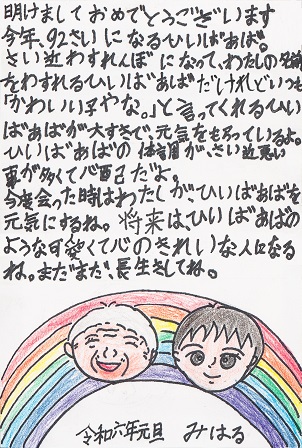 明けましておめでとうございます
今年、92さいになるひいばあば。
さい近わすれんぼになって、わたしの名前
をわすれるひいばあばだけれどいつも
「かわいい子やな。」と言ってくれるひい
ばあばが大すきで、元気をもらっているよ。
ひいばあばの体調が、さい近悪い
事が多くて心配だよ。
今度会った時はわたしが、ひいばあばを
元気にするね。将来は、ひいばあばの
ような可愛くて心のきれいな人になる
ね。まだまだ、長生きしてね。
令和六年元旦 みはる